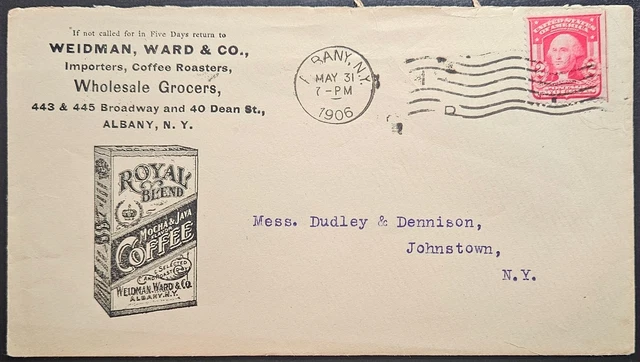 If not called for in Five Days return to
WEIDMAN, WARD & CO.,
Importers, Coffee Roasters,
Wholesale Grocers,
443 & 445 Broadway and 40 Dean St.,
ALBANY, N. Y.
BANY, N.Y.
MAY 31
7-PM
1906
D
UNITED STATES
OF AMERICA
ROYAL
BLEND
MOCHA & JAVA
COFFEE
SELECTED
WEIDMAN, WARD & CO.
ALBANY. N.Y.
Mess. Dudley & Dennison,
Johnstown,
N.Y.